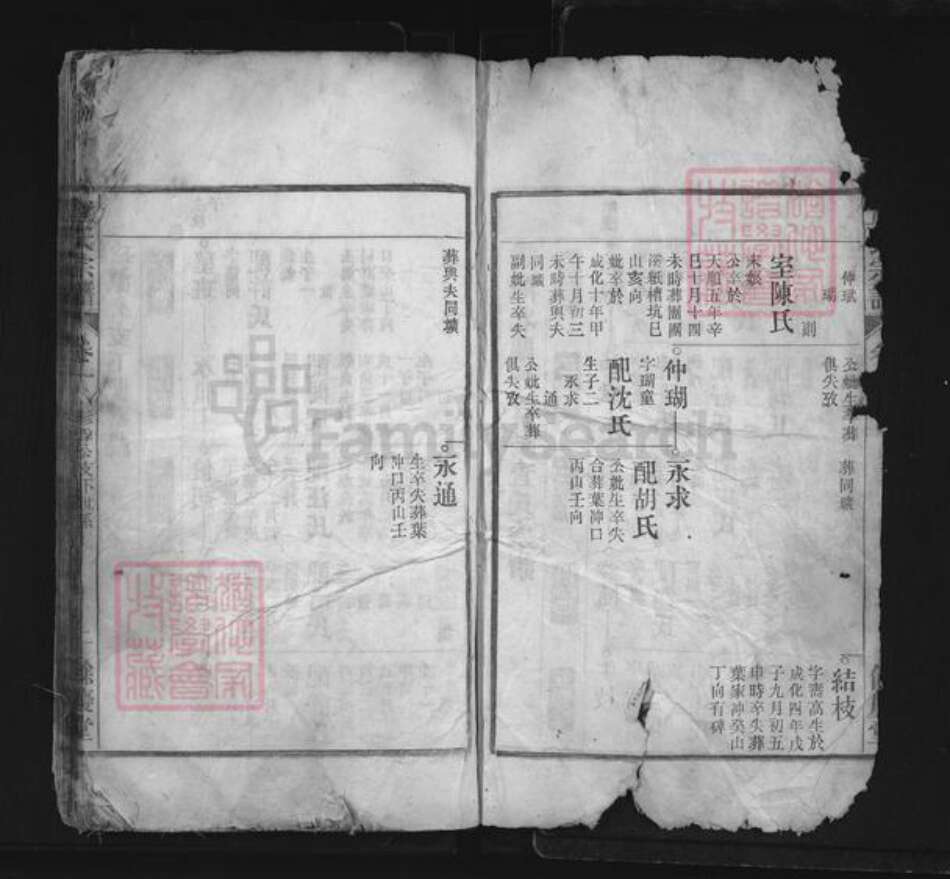 仲斌
瑚
副
室陳氏
末娘
公卒於
天順五年辛
巳十月十四
未時葬團團
深紙槽坑巳
山亥向
妣卒於
成化十年甲
午十月初三
未時葬與夫
同壙
副妣生卒失
公妣生卒葬
俱失攷
仲瑚
字瑚童
配沈氏
生子二
永求
通
公妣生卒葬
俱失攷
葬同壙
永求
配胡氏
公妣生卒失
合葬葉冲口
丙山壬向
結枝
字喬高生於
成化四年戊
子九月初五
申時卒失葬
葉家冲癸山
丁向有碑
葬與夫同壙
永通
生卒失葬葉
冲口丙山壬
向
氏宗譜
卷
餘慶堂
FamilySearch